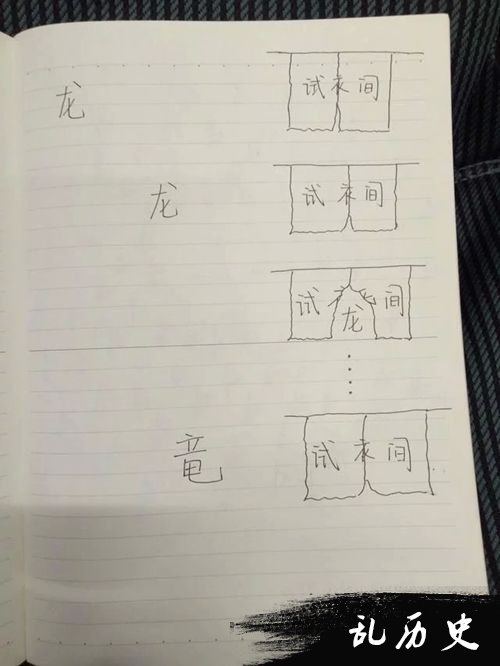 龙 试衣间
龙 试衣间
试衣间
龙
竜 试衣间
乱历史